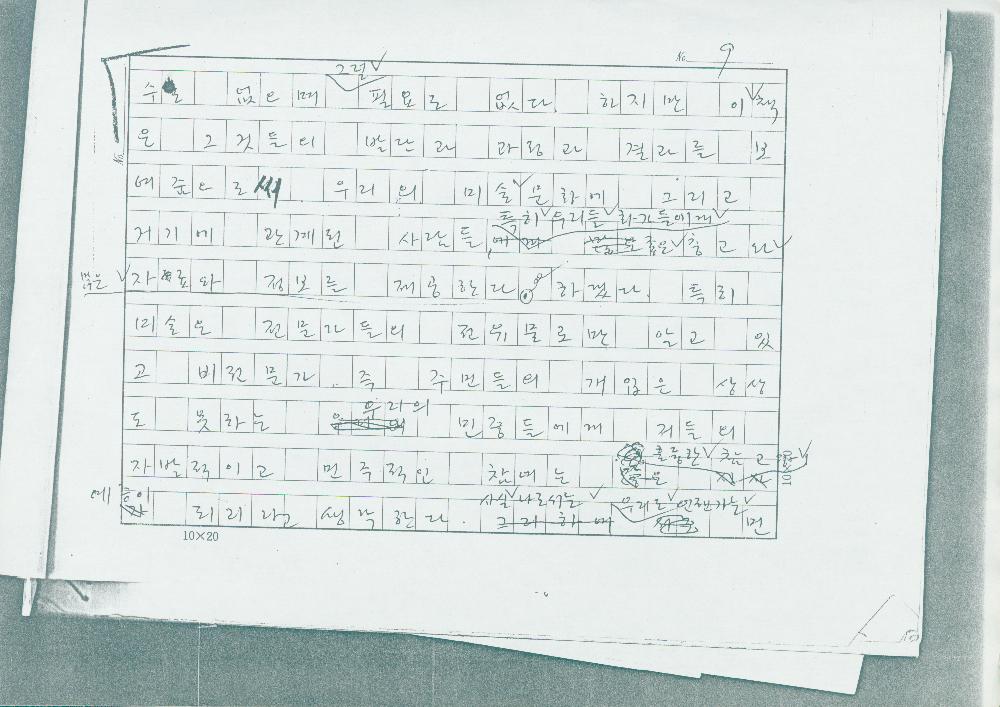 No. 9
그럴
수도 없으며 필요도 없다. 하지만 이책
은 그것들의 발단과 과정과 결과를 보
여줌으로써 우리의 미술문화에 그리고
특히 우리들 화가들에게
거기에 관계된 사람들, 좋은 충고와
많은 자료와 정보를 제공한다 하겠다. 특히
미술은 전문가들의 전유물로만 알고 있
고 비전문가. 즉 주민들의 개입은 상상
우리의
도 못하는 민중들에게 저들의
훌륭한 참고
자발적이고 민주적인 참여는 좋은
예 증이 되리라고 생각한다. 그러하며 면
사실 나로서는 우리도 언젠가는
10×20